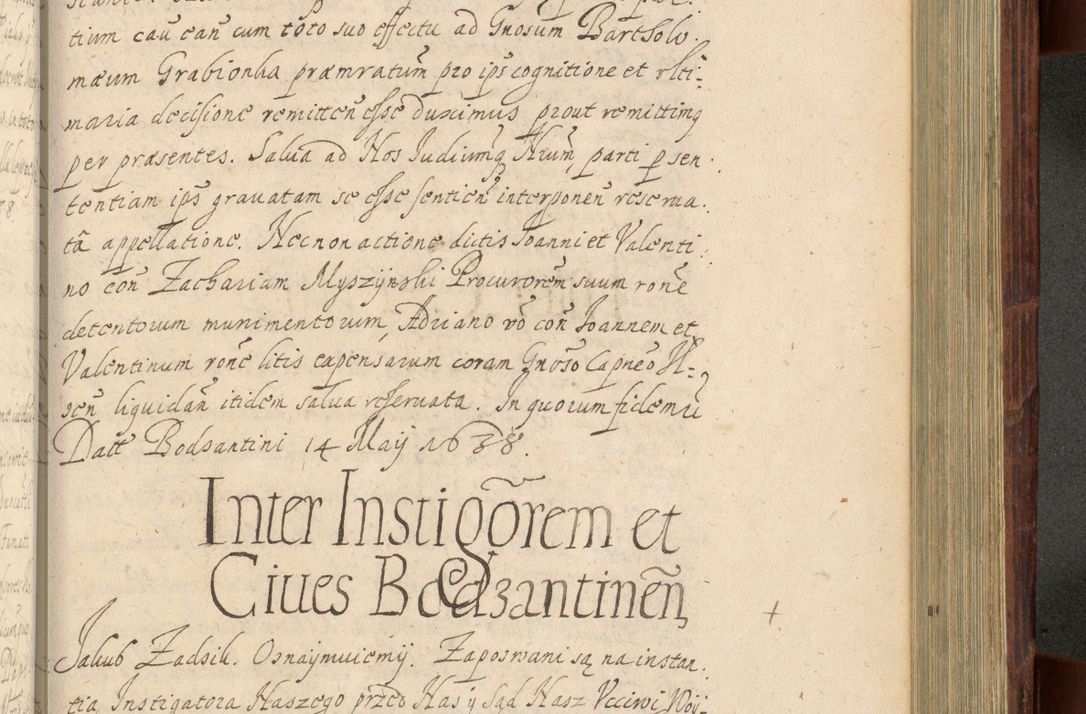 tium cau eañ cum toto suo effectu ad Gnosum Bartholo.
mæum Grabionka præmratum̃ pro ips cognitione et vlti-
maria decisione remitteñ esse duximus prout remittimꝰ
per præsentes. Salua ad Nos Iudiumq̃ Nrum̃ parti p sen.
tentiam ips grauatam se esse sentieñ interponeñ reserua.
tã appellatione. Necnon actione dictis Ioanni et Valenti.
no coñ Zachariam Myszynski Procurorem̃ suum roñe
detentorum munimentorum, Adriano ṽo coñ Ioannem et
Valentinum roñe litis expensarum coram Gnoso Capneo Il-
señ liquidañ itidem salua reseruata. In quorum fidem ũ
Datt Bodsantini 14 Maij 1638.
Inter Instigõrem et
Ciues Bodzantineñ
Jakub Zadsik. Osnaymuiemy. Zaposwani są na instan.
tia Instigatora Naszego przed Nas y Sąd Nasz Vcciwi Woy-